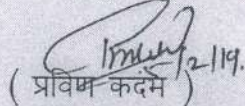 2/19.
( प्रविण कदंम )